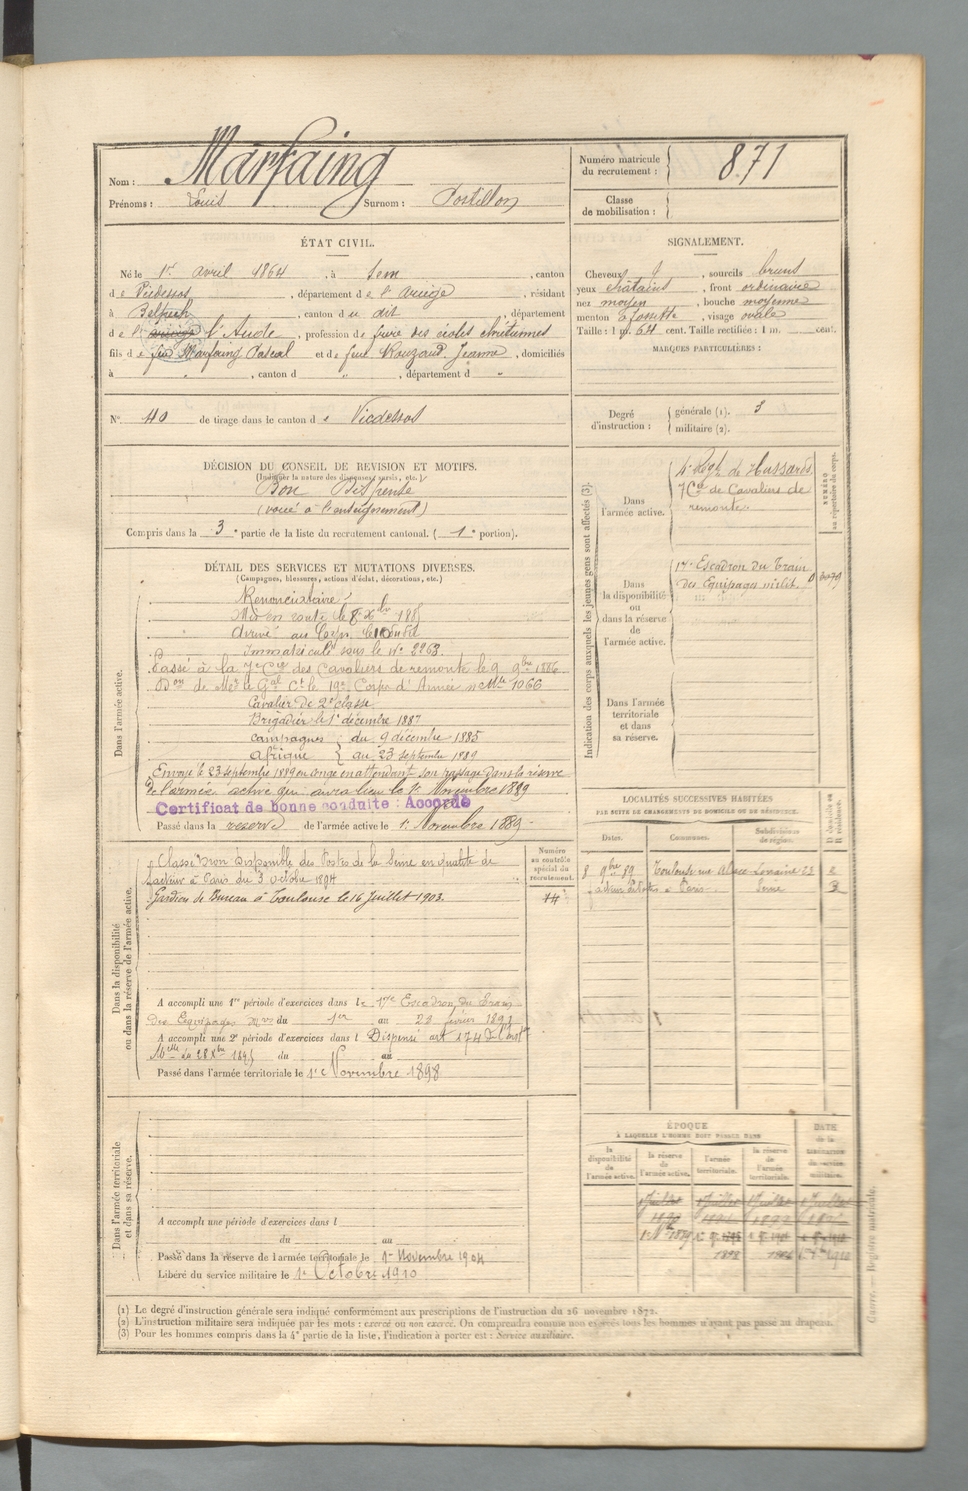 Nom : Marfaing
Prénoms : Louis Surnom : Postillon
Numéro matricule du recrutement : 871
Classe de mobilisation :
ÉTAT CIVIL.
Né le 1er avril 1864, à Sem, canton
de Vicdessos, département de l'ariège, résidant
à Belpech, canton du dit, département
de l'ariège l'Aude, profession de frère des écoles chrétiennes
fils de feu Marfaing Pascal et de feue Rouzaud Jeanne, domiciliés
à " , canton d " , département d "
SIGNALEMENT.
Cheveux, sourcils bruns
yeux chatains, front ordinaire
nez moyen, bouche moyenne
menton à fossette, visage ovale
Taille : 1 m. 64 cent. Taille rectifiée : 1 m. cent.
MARQUES PARTICULIÈRES :
N° 40 de tirage dans le canton de Vicdessos
Degré d'instruction : générale (1). 3
militaire (2).
DÉCISION DU CONSEIL DE REVISION ET MOTIFS.
(Indiquer la nature des dispenses, sursis, etc.)
Bon Dispensé
(voué à l'enseignement)
Compris dans la 3e partie de la liste du recrutement cantonal. (1e portion).
DÉTAIL DES SERVICES ET MUTATIONS DIVERSES.
(Campagnes, blessures, actions d'éclat, décorations, etc.)
Dans l'armée active.
Renonciataire
Mis en route le 8 Xbre 1885
Arrivé au Corps le 10 dudit
Immatriculé sous le N° 2263
Passé à la 7e Cie des Cavaliers de remonte le 9 9bre 1886
Don de Mr le Gal Ct le 19e Corps d'Armée n° Mle 1066
Cavalier de 2e classe
Brigadier le 1er décembre 1887
Campagnes : du 9 décembre 1885
Afrique au 23 septembre 1889
Envoyé le 23 septembre 1889 en congé en attendant son passage dans la réserve
de l'armée active qui aura lieu le 1er Novembre 1889
Certificat de bonne conduite : Accordé
Passé dans la reserve de l'armée active le 1er Novembre 1889
Indication des corps auxquels les jeunes gens sont affectés (3).
NUMÉRO au répertoire du corps.
Dans l'armée active.
4e Regt de Hussards
7 Cie de Cavaliers de
remonte
Dans la disponibilité ou dans la réserve de l'armée active.
17e Escadron du Train
des Equipages milit. 3079
Dans l'armée territoriale et dans sa réserve.
LOCALITÉS SUCCESSIVES HABITÉES
PAR SUITE DE CHANGEMENTS DE DOMICILE OU DE RÉSIDENCE.
Dates. Communes. Subdivisions de région. D domicile ou R résidence.
8 9bre 89 Toulouse rue Alsace-Lorraine 23
facteur à Paris. Seine
Dans la disponibilité ou dans la réserve de l'armée active.
Numéro au contrôle spécial du recrutement.
Classé non disponible des Postes de la Seine en qualité de
facteur à Paris du 3 octobre 1894
Gardien de Bureau à Toulouse le 16 Juillet 1903.
A accompli une 1re période d'exercices dans le 17me Escadron du Train
des Equipages mres du 1er au 28 février 1891
A accompli une 2e période d'exercices dans l Dispensé art 174 de l'Inst
Melle du 28 Xbre 1895 du au
Passé dans l'armée territoriale le 1er Novembre 1898
Dans l'armée territoriale et dans sa réserve.
A accompli une période d'exercices dans l
du au
Passé dans la réserve de l'armée territoriale le 1er Novembre 1904
Libéré du service militaire le 1er Octobre 1910
ÉPOQUE
À LAQUELLE L'HOMME DOIT PASSER DANS
la disponibilité de l'armée active. la réserve de l'armée active. l'armée territoriale. la réserve de l'armée territoriale. DATE de la libération du service militaire.
1 Juillet 1 Juillet 1 Juillet 1 Juillet
(1) Le degré d'instruction générale sera indiqué conformément aux prescriptions de l'instruction du 26 novembre 1872.
(2) L'instruction militaire sera indiquée par les mots : exercé ou non exercé. On comprendra comme non exercés tous les hommes n'ayant pas passé au drapeau.
(3) Pour les hommes compris dans la 4e partie de la liste, l'indication à porter est : Service auxiliaire.
Guerre. — Registre matricule.